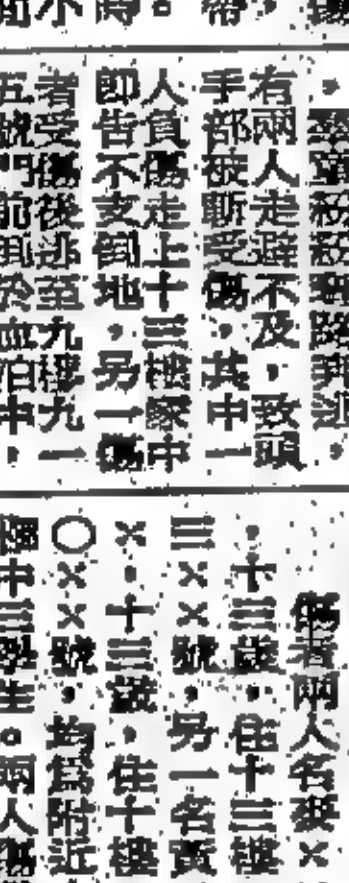 羣童紛紛奔逃，
有兩人走避不及，致頭
手部被斬受傷，其中一
人負傷走上十三樓家中
卽告不支倒地，另一傷
者受傷後逃至九樓九一
五號門前臥於血泊中，
傷者兩人名蔡×
，十三歲，住十三樓
三××號，另一名黃
×，十三歲，住十樓
〇××號，均爲附近
中三學生。兩人傷